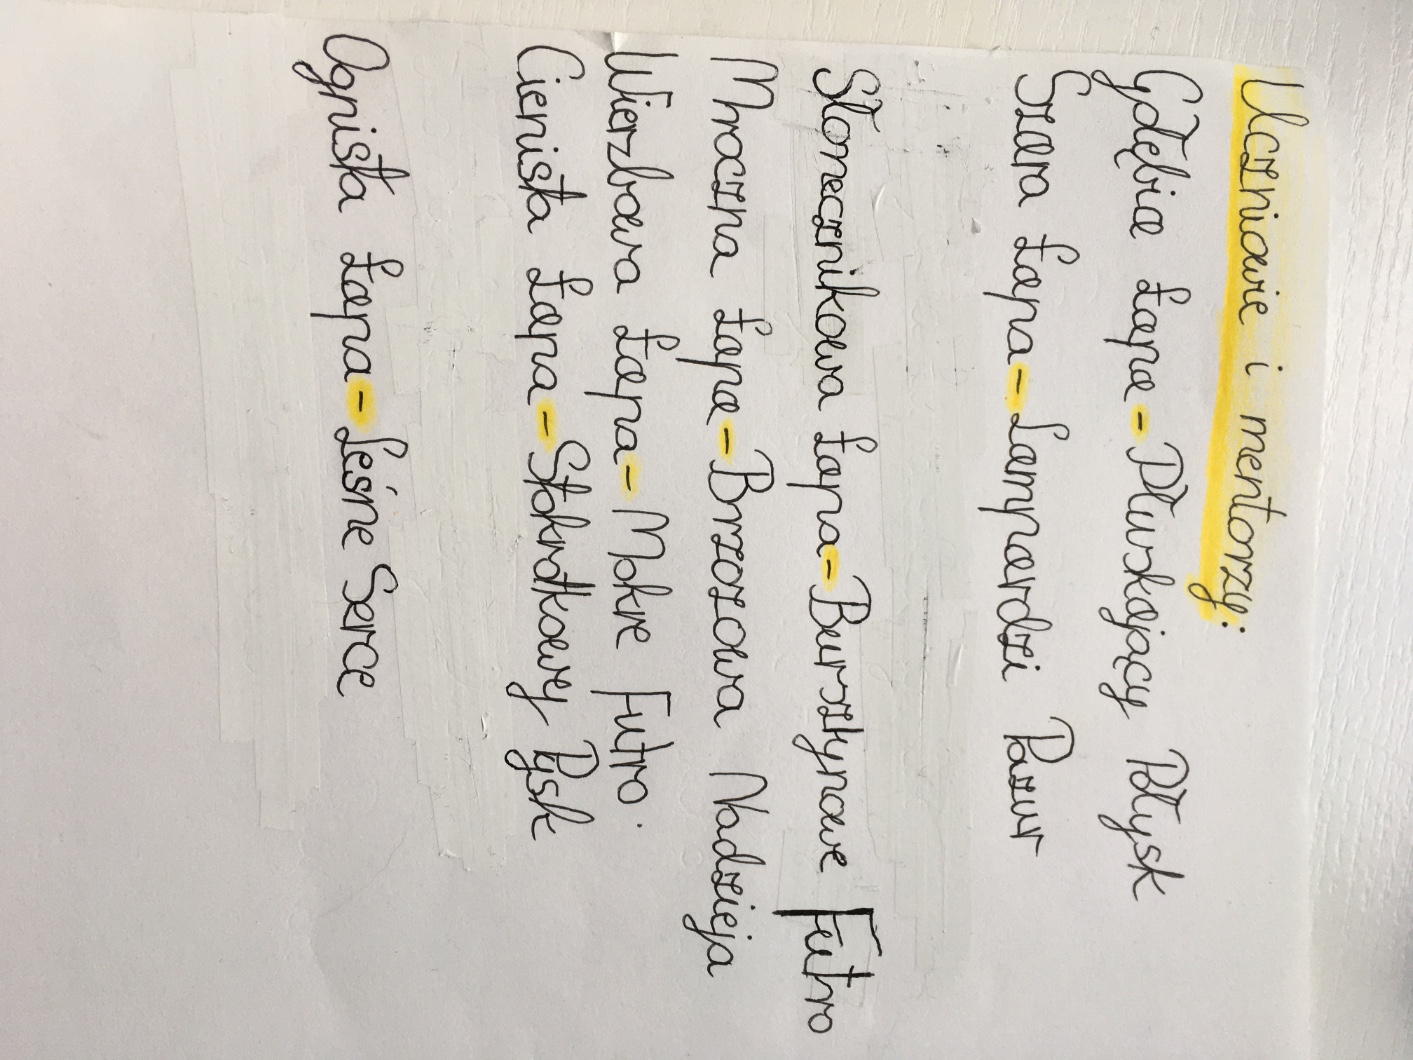 Uczniowie i mentorzy:
Gołębia Łapa-Pluskający Połysk
Szara Łapa-Lampardzi Pazur
Słonecznikowa Łapa-Bursztynowe Futro
Mroczna Łapa-Brzozowa Nadzieja
Wierzbowa Łapa-Mokre Futro.
Cienista Łapa-Stokrotkowy Pysk
Ognista Łapa-Leśne Serce